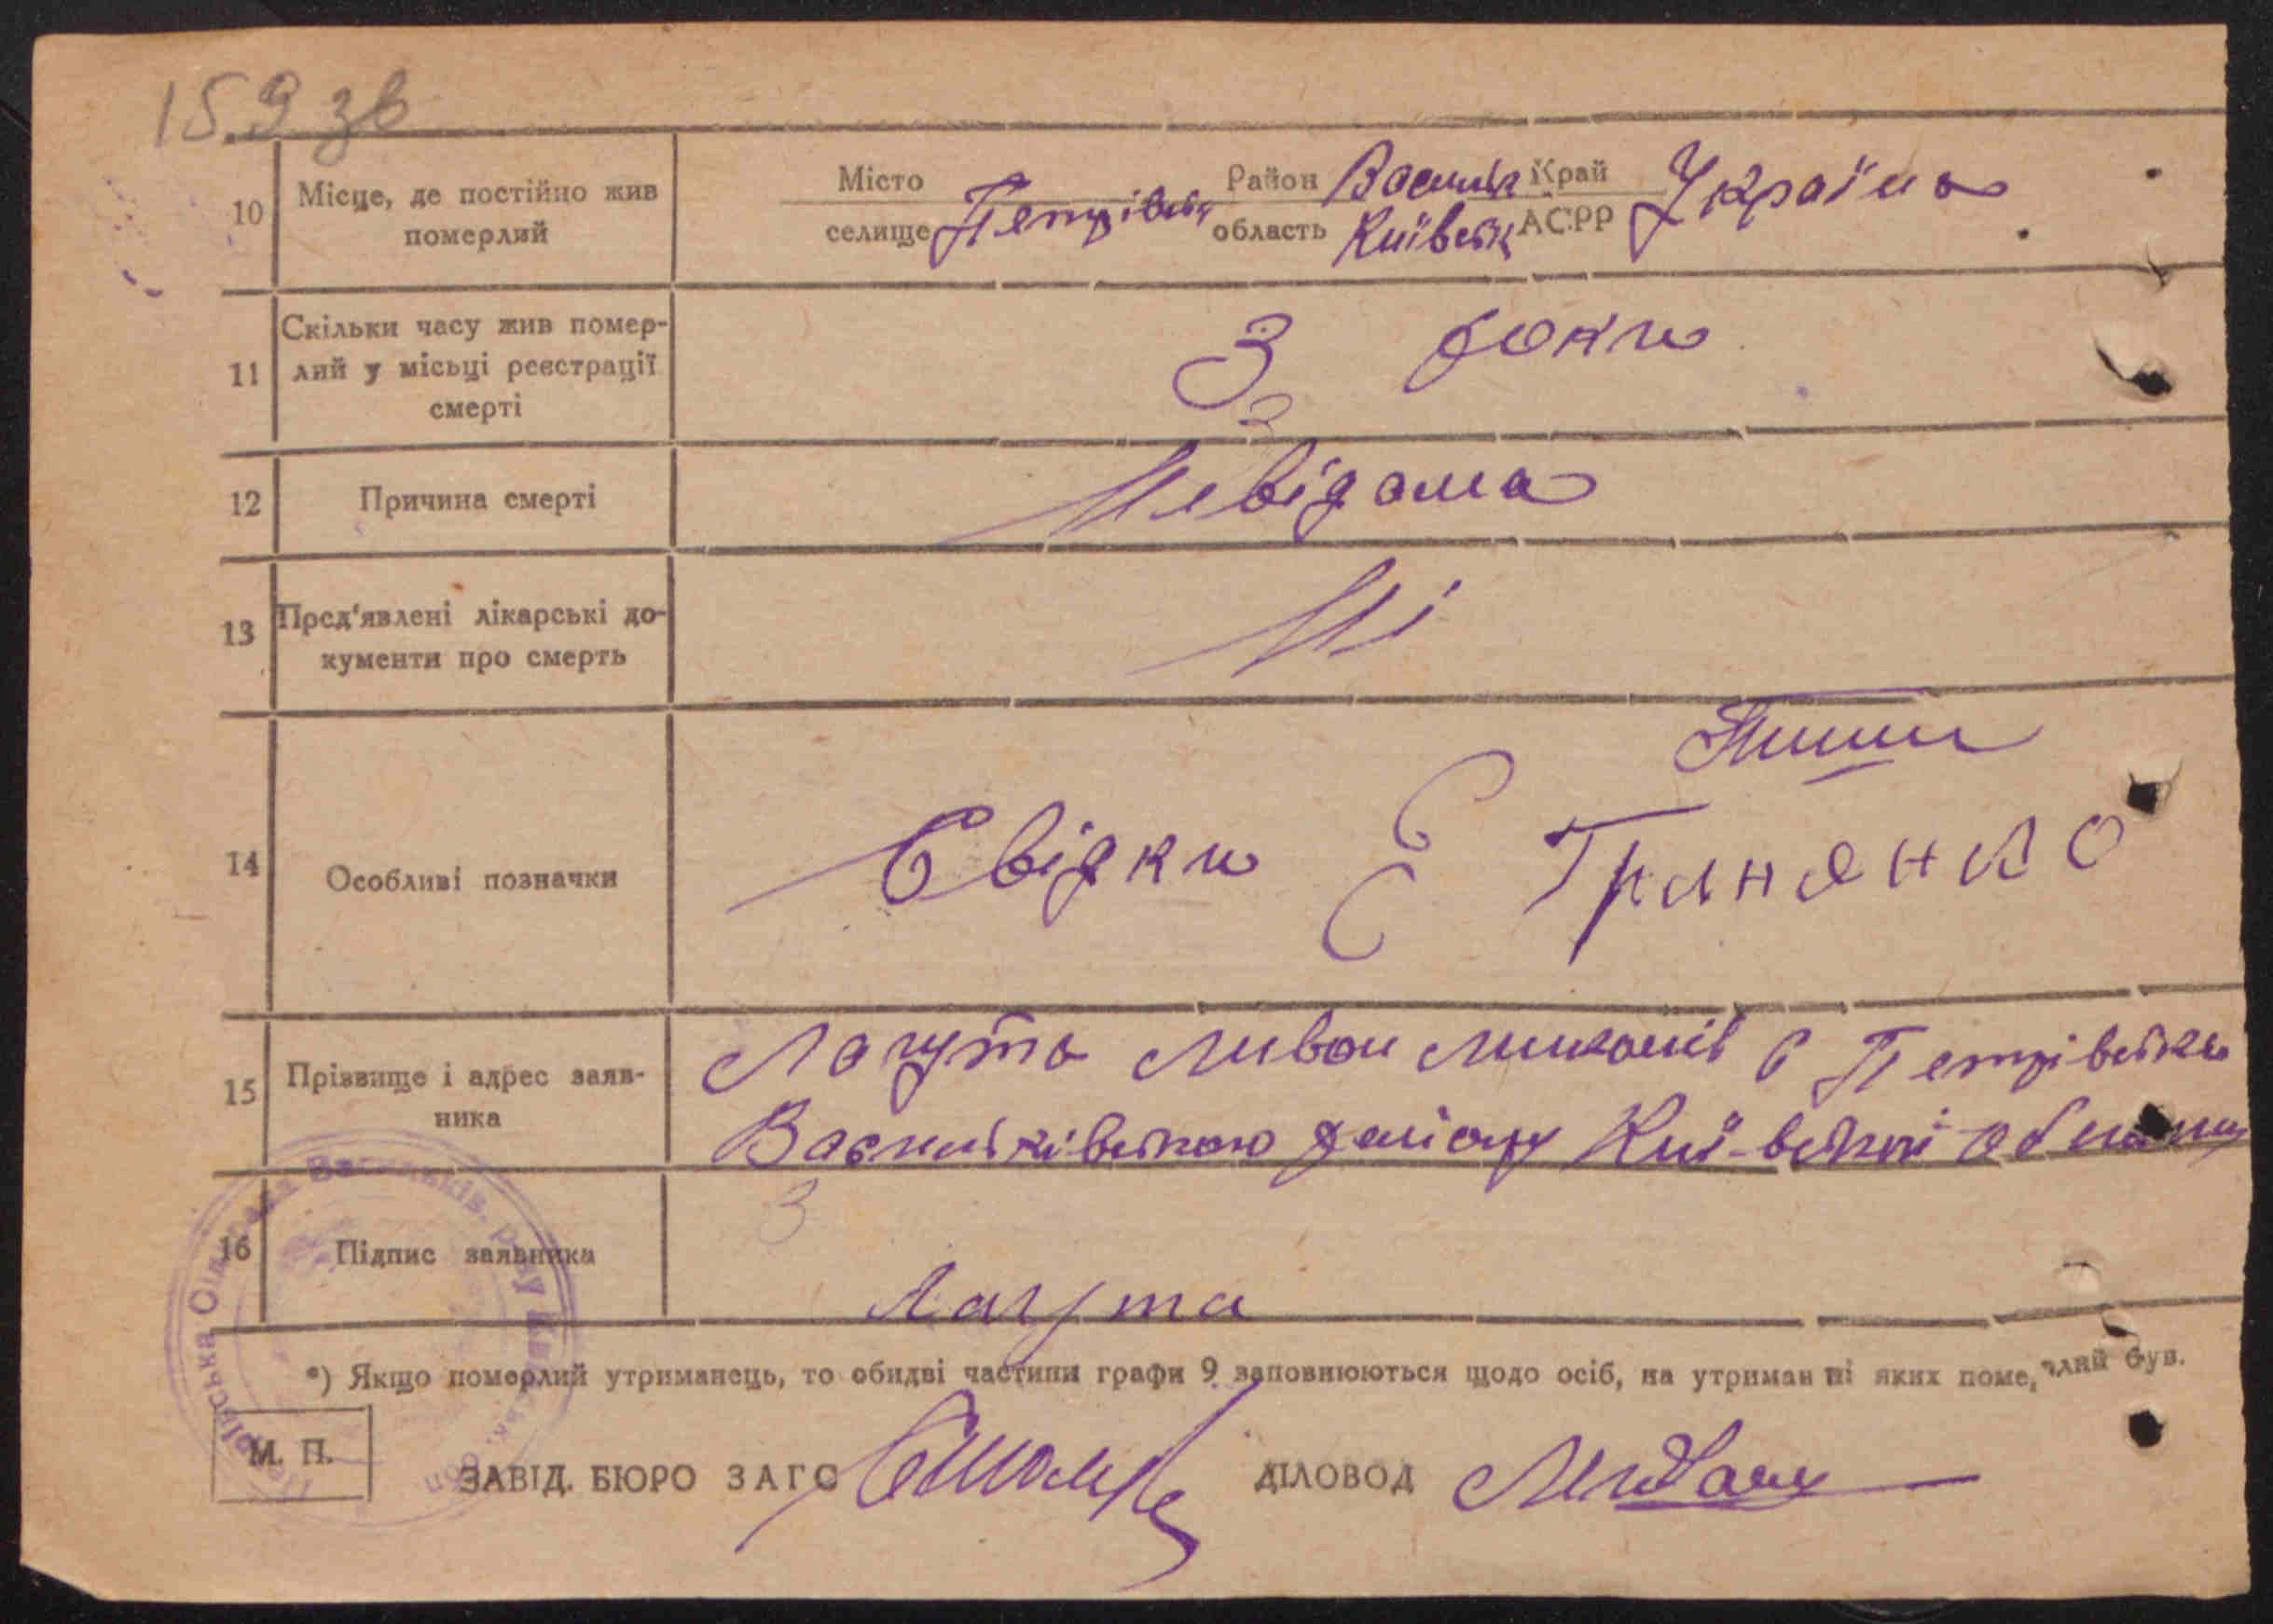 159 зв
10 Місце, де постійно жив померлий
Місто селище Петрівськ Район Васильк область Київськ Край АСРР Україна
11 Скільки часу жив помер-
лий у місьці реєстрації
смерті
3 роки
12 Причина смерті Невідома
13 Пред'явлені лікарські до-
кументи про смерть
Ні
14 Особливі позначки Свідки
15 Прізвище і адрес заяв-
ника
Лагута с Петрівське
Васильківського району Київської області
16 Підпис заявника
Лагута
*) Якщо померлий утриманець, то обидві частини графи 9 заповнюються щодо осіб, на утриманні яких померлий був.
М. П.
ЗАВІД. БЮРО ЗАГС ДІЛОВОД